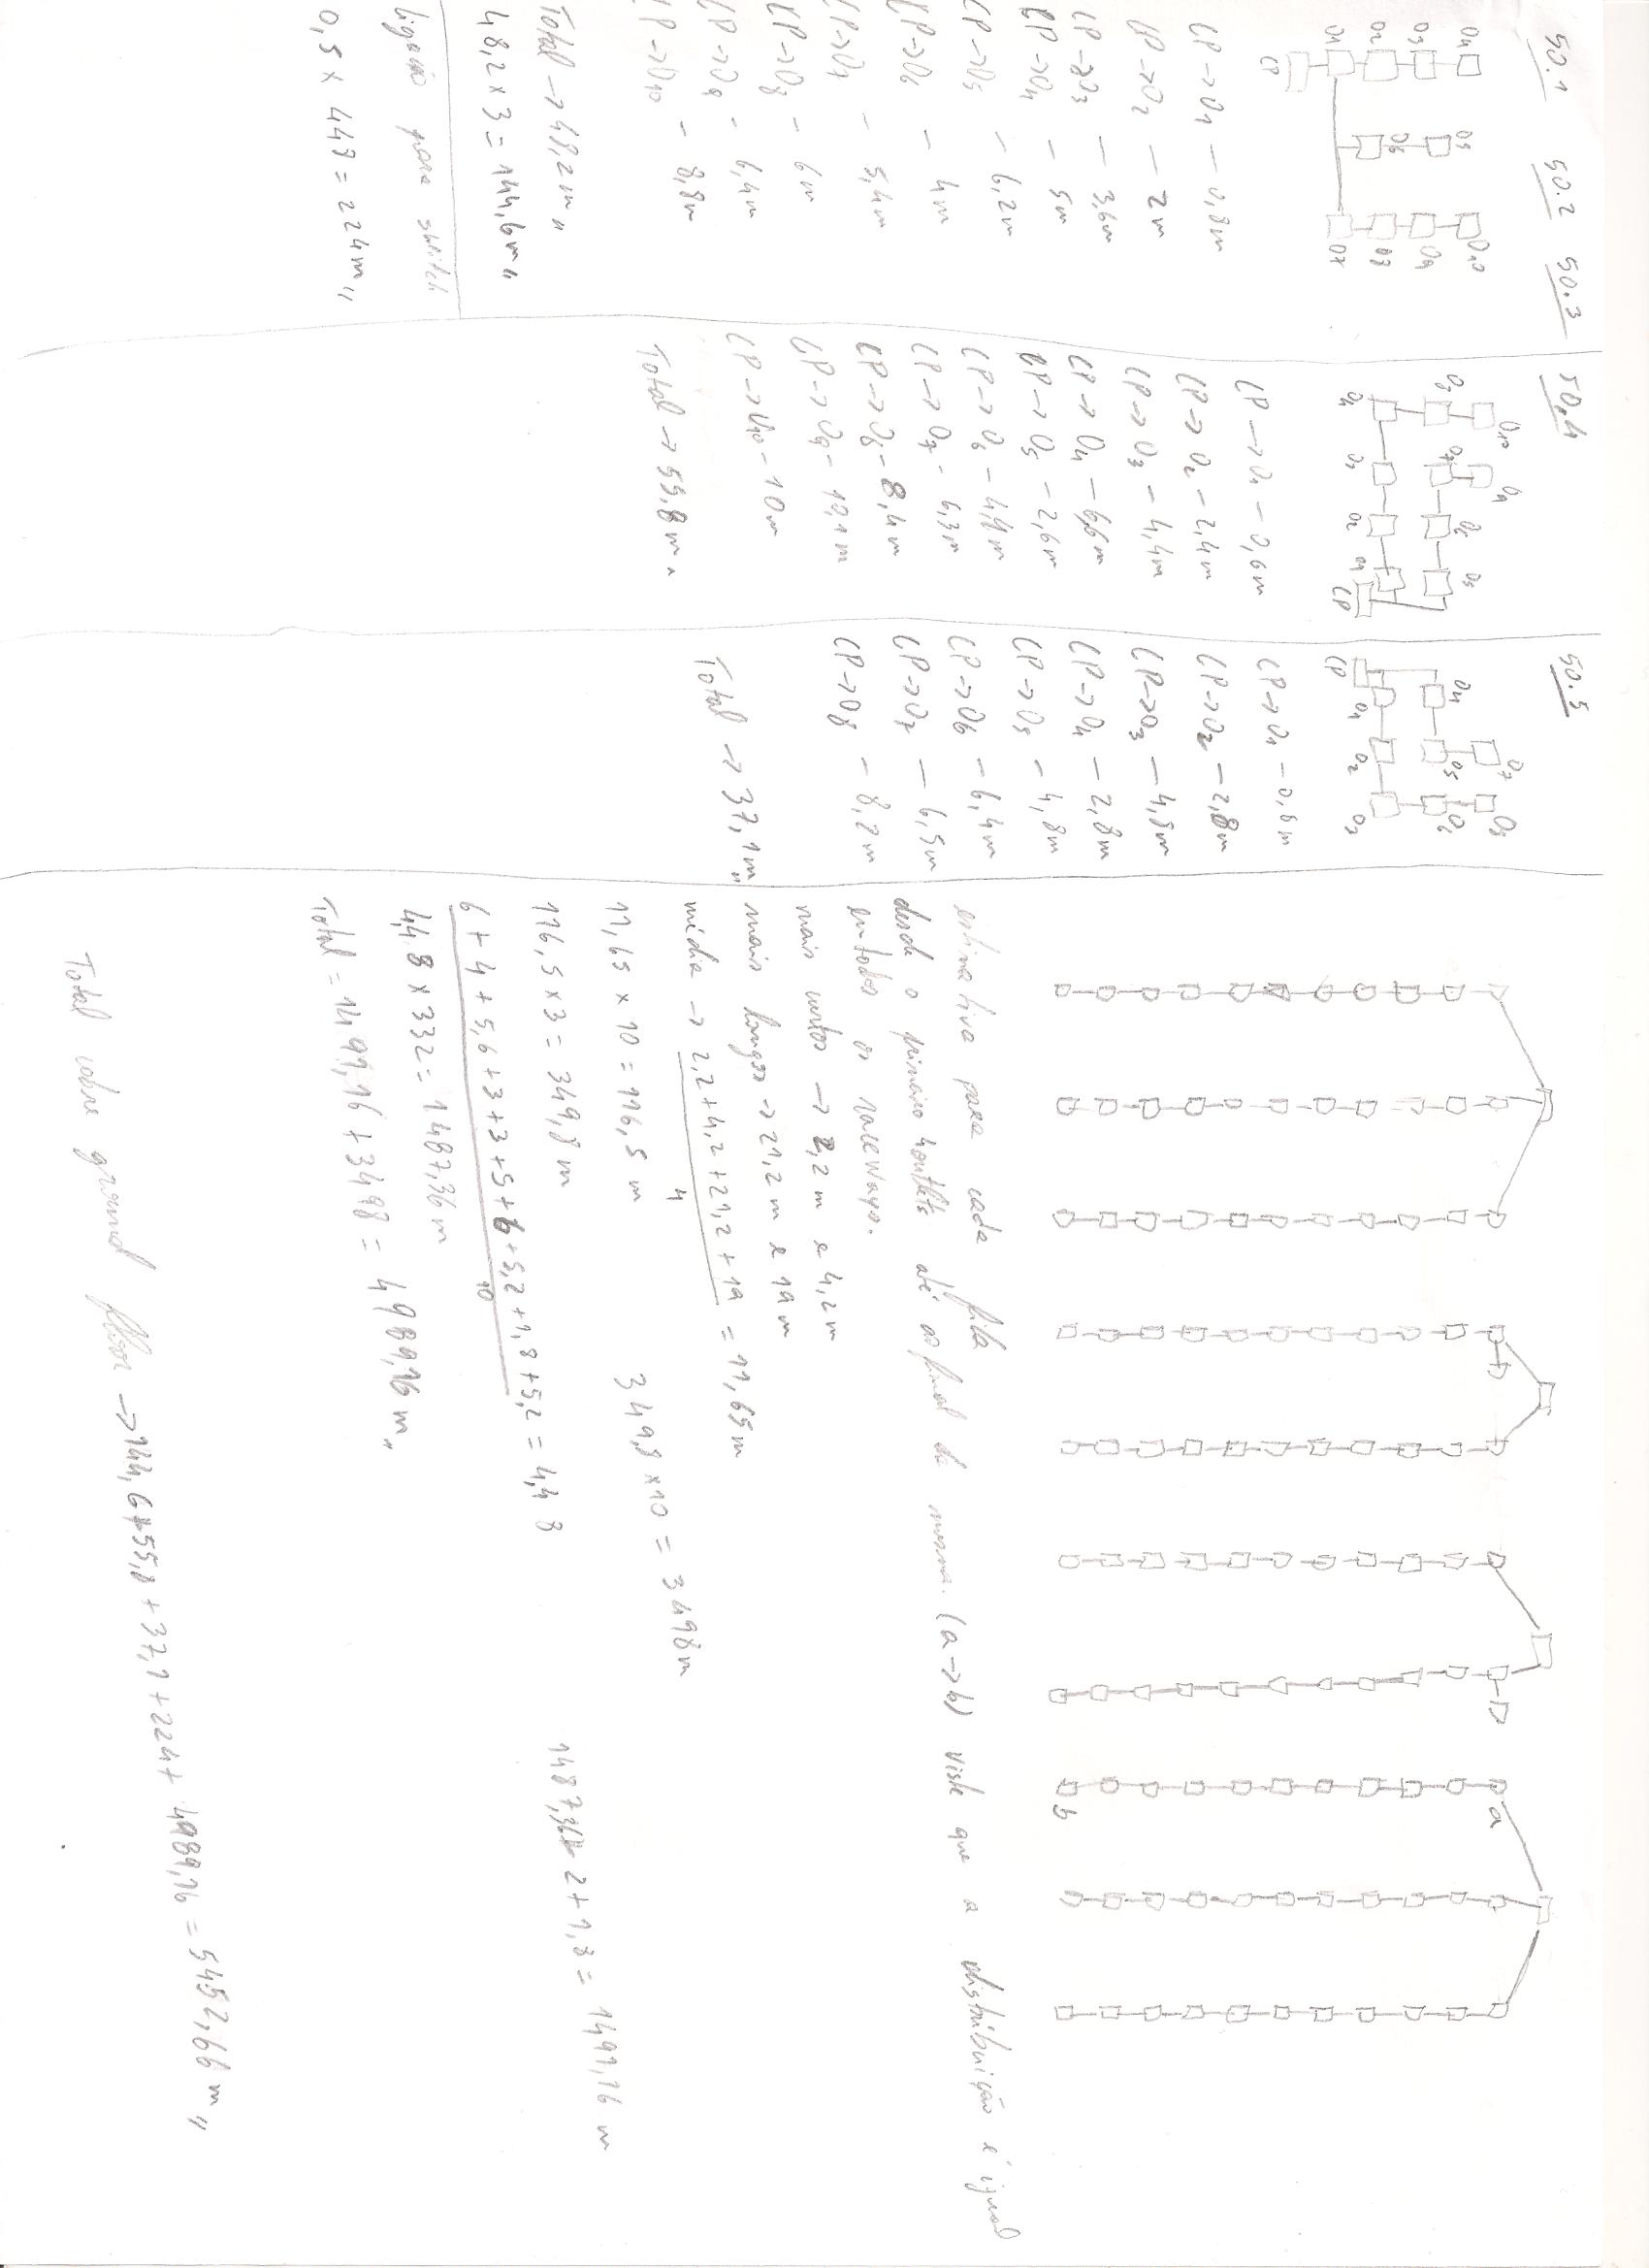 50.1 50.2 50.3
O4 O5 O10
O3 O9
O6
O2 O8
O1 O7
CP
CP → O1 — 0,8m
CP → O2 — 2m
CP → O3 — 3,6m
CP → O4 — 5m
CP → O5 — 6,2m
CP → O6 — 4m
CP → O7 — 5,4m
CP → O8 — 6m
CP → O9 — 6,4m
CP → O10 — 8,8m
Total → 48,2m,,
48,2 x 3 = 144,6m,,
ligação para switch
0,5 x 448 = 224m,,
50.4
O10 O9
O8 O7 O6 O5
O4 O3 O2 O1 CP
CP → O1 — 0,6m
CP → O2 — 2,4m
CP → O3 — 4,4m
CP → O4 — 6,6m
CP → O5 — 2,6m
CP → O6 — 4,4m
CP → O7 — 6,3m
CP → O8 — 8,4m
CP → O9 — 10,1m
CP → O10 — 10m
Total → 55,8m,,
50.5
O7 O8
O4 O5 O6
CP O1 O2 O3
CP → O1 — 0,8m
CP → O2 — 2,8m
CP → O3 — 4,8m
CP → O4 — 2,8m
CP → O5 — 4,8m
CP → O6 — 6,4m
CP → O7 — 6,5m
CP → O8 — 8,2m
Total → 37,1m,,
a
b
estimativa para cada fila
desde o primeiro 4outlets até ao final da mesma. (a→b) visto que a distribuição é igual
em todos os raceways.
mais curtos → 2,2 m e 4,2 m
mais longos → 21,2 m e 19 m
média → 2,2+4,2+21,2+19 = 11,65m
4
11,65 x 10 = 116,5 m
349,8 x 10 = 3498m
116,5 x 3 = 349,8 m
1487,36+ 2 + 1,8 = 1491,16 m
6 + 4 + 5,6 + 3 + 3 + 5 + 6 + 5,2 + 1,8 + 5,2 = 4,48
10
4,48 x 332 = 1487,36 m
Total = 1491,16 + 3498 = 4989,16 m,,
Total cobre ground floor → 144,6+55,8 + 37,1 + 224 + 4989,16 = 5452,66 m,,